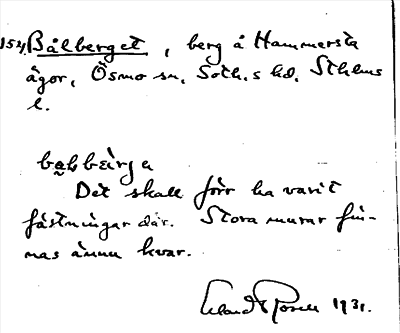 154. Bålberget, berg å Hammersta
ägor, Ösmo sn, Soth.s hd, Sthlms
l.
Det skall förr ha varit
fästningar där. Stora murar fin-
nas ännu kvar.
1931.